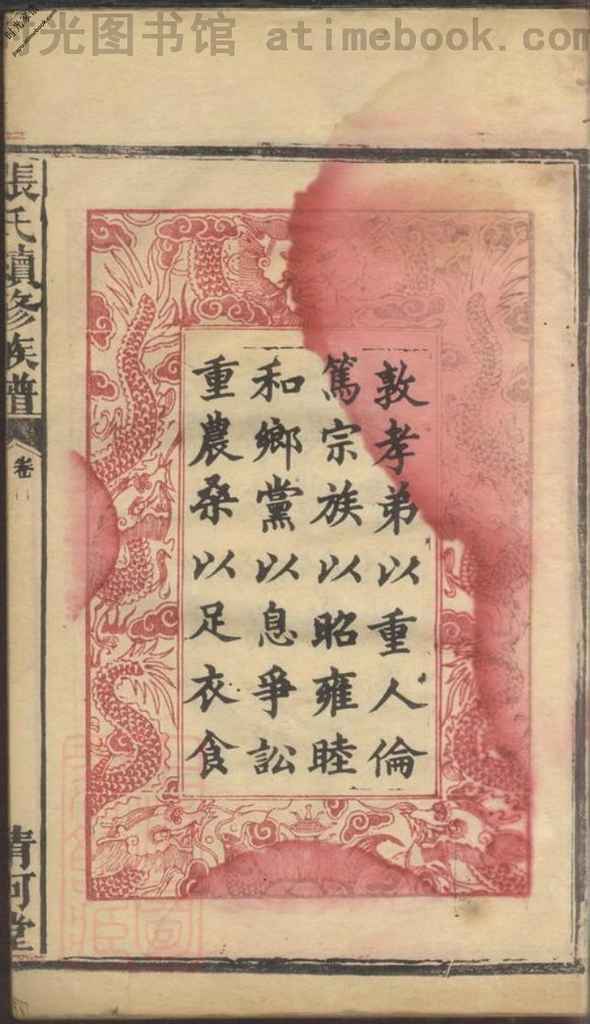 时光图书馆 atimebook.com
敦孝弟以重人倫
篤宗族以昭雍睦
和鄉黨以息爭訟
重農桑以足衣食
張氏續修族譜
卷
清河堂